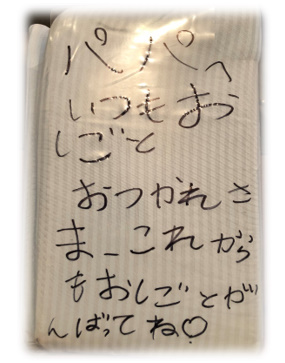 パパへ
いつもおう
しごーと
おつかれさ
まーこれから
もおしごとが
んばってね♡